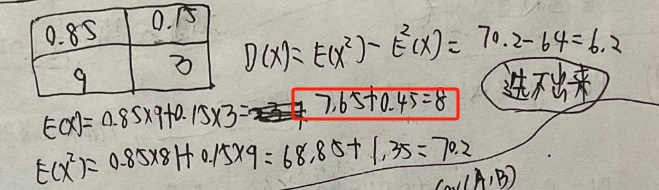 0.85 0.15
9 3
D(X)=E(X²)-E²(X)=70.2-64=6.2
E(X)=0.85×9+0.15×3=7.65+0.45=8
选不出来
E(X²)=0.85×81+0.15×9=68.85+1.35=70.2
Cov(A,B)